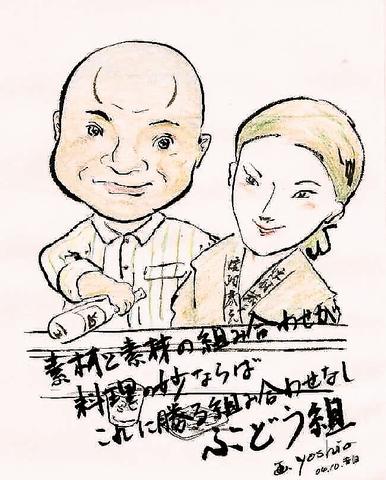 素材と素材の組み合わせが
料理の妙ならば
これに勝る組み合わせなし
ぶどう組
画 yoshio